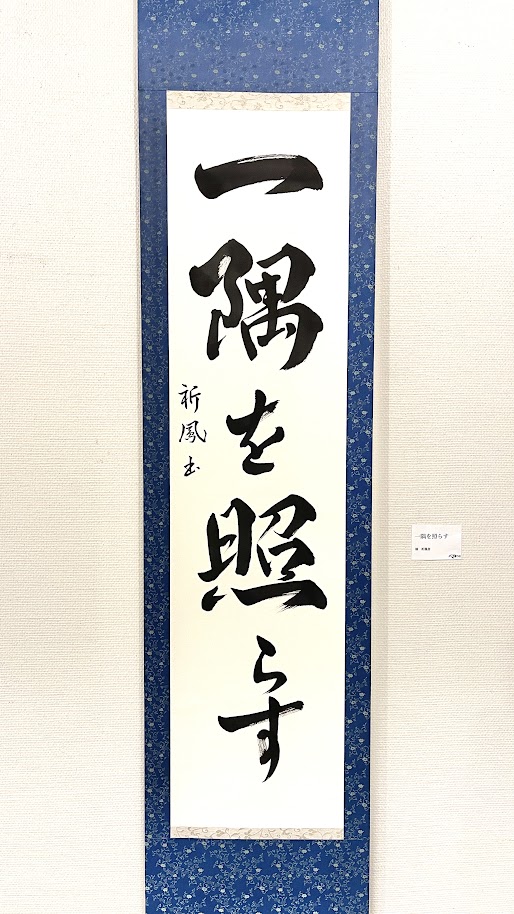 一隅を照らす
祈鳳書
一隅を照らす